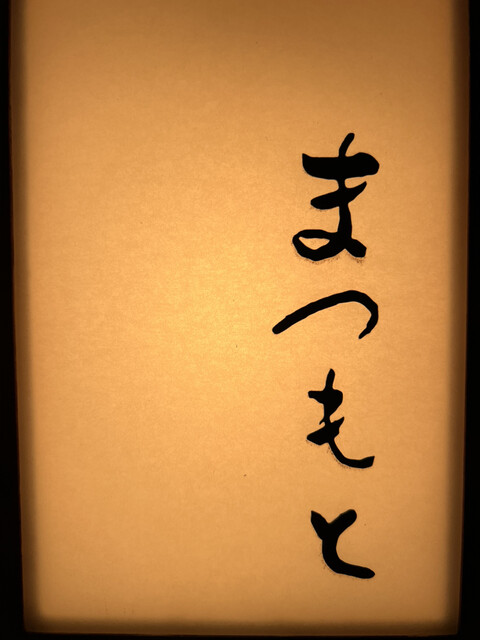 まつもと